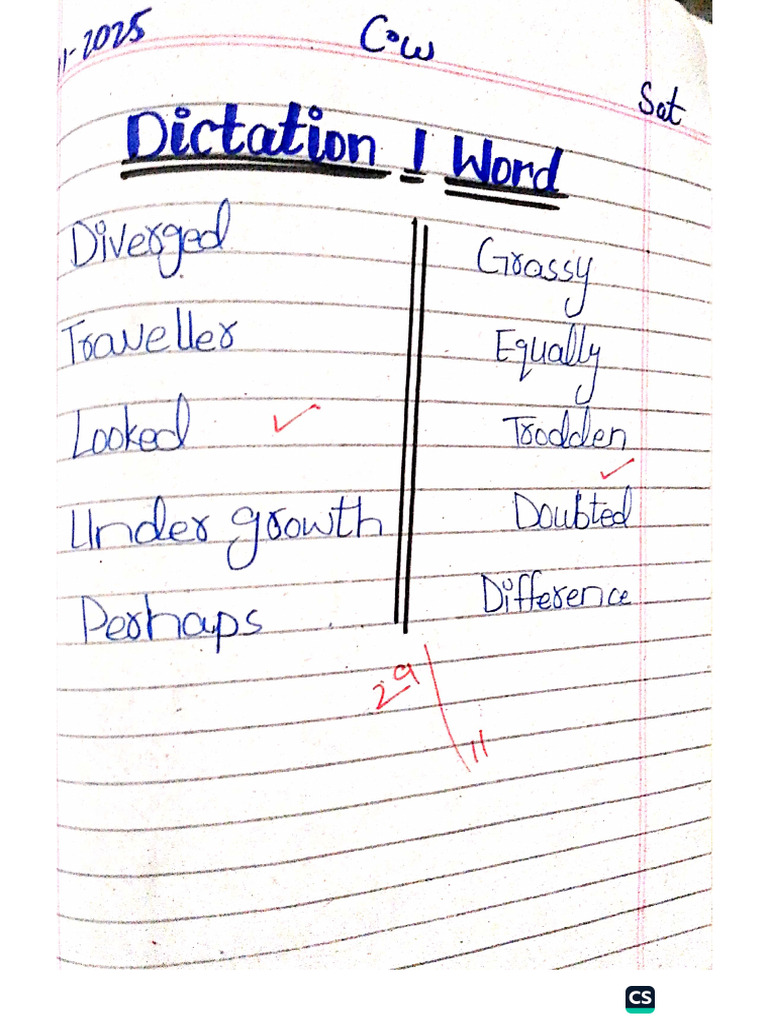 11-2025
C.W
Sat
Dictation 1 Word
Diverged
Traveller
Looked
Under growth
Perhaps
Grassy
Equally
Trodden
Doubted
Difference
29/11
CS